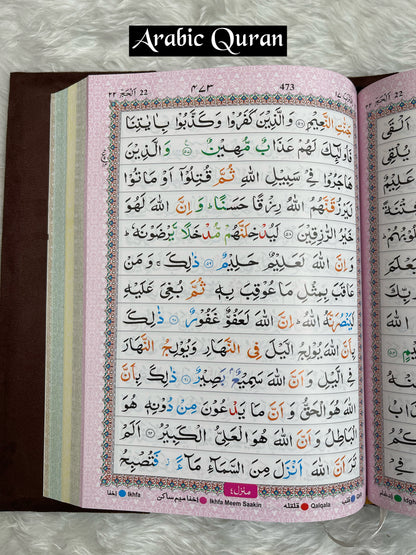 Arabic Quran
٢٣ اَلْحَجّ 22
٤٧٣
473
جَنّٰتِ النَّعِيْمِ ۝٥٦ وَالَّذِيْنَ كَفَرُوْا وَكَذَّبُوْا بِاٰيٰتِنَا
فَاُولٰٓئِكَ لَهُمْ عَذَابٌ مُّهِيْنٌ ۝٥٧ وَالَّذِيْنَ
هَاجَرُوْا فِيْ سَبِيْلِ اللّٰهِ ثُمَّ قُتِلُوْٓا اَوْ مَاتُوْا
لَيَرْزُقَنَّهُمُ اللّٰهُ رِزْقًا حَسَنًا ؕ وَاِنَّ اللّٰهَ لَهُوَ
خَيْرُ الرّٰزِقِيْنَ ۝٥٨ لَيُدْخِلَنَّهُمْ مُّدْخَلًا يَّرْضَوْنَهٗ ؕ
وَاِنَّ اللّٰهَ لَعَلِيْمٌ حَلِيْمٌ ۝٥٩ ذٰلِكَ ۚ وَمَنْ
عَاقَبَ بِمِثْلِ مَا عُوْقِبَ بِهٖ ثُمَّ بُغِيَ عَلَيْهِ
لَيَنْصُرَنَّهُ اللّٰهُ ؕ اِنَّ اللّٰهَ لَعَفُوٌّ غَفُوْرٌ ۝٦٠ ذٰلِكَ
بِاَنَّ اللّٰهَ يُوْلِجُ الَّيْلَ فِي النَّهَارِ وَيُوْلِجُ النَّهَارَ
فِي الَّيْلِ وَاَنَّ اللّٰهَ سَمِيْعٌۢ بَصِيْرٌ ۝٦١ ذٰلِكَ بِاَنَّ
اللّٰهَ هُوَ الْحَقُّ وَاَنَّ مَا يَدْعُوْنَ مِنْ دُوْنِهٖ هُوَ
الْبَاطِلُ وَاَنَّ اللّٰهَ هُوَ الْعَلِيُّ الْكَبِيْرُ ۝٦٢ اَلَمْ
تَرَ اَنَّ اللّٰهَ اَنْزَلَ مِنَ السَّمَآءِ مَآءً ؗ فَتُصْبِحُ
منزل٤
اخفا Ikhfa
اخفا ميم ساكن Ikhfa Meem Saakin
قلقله Qalqala